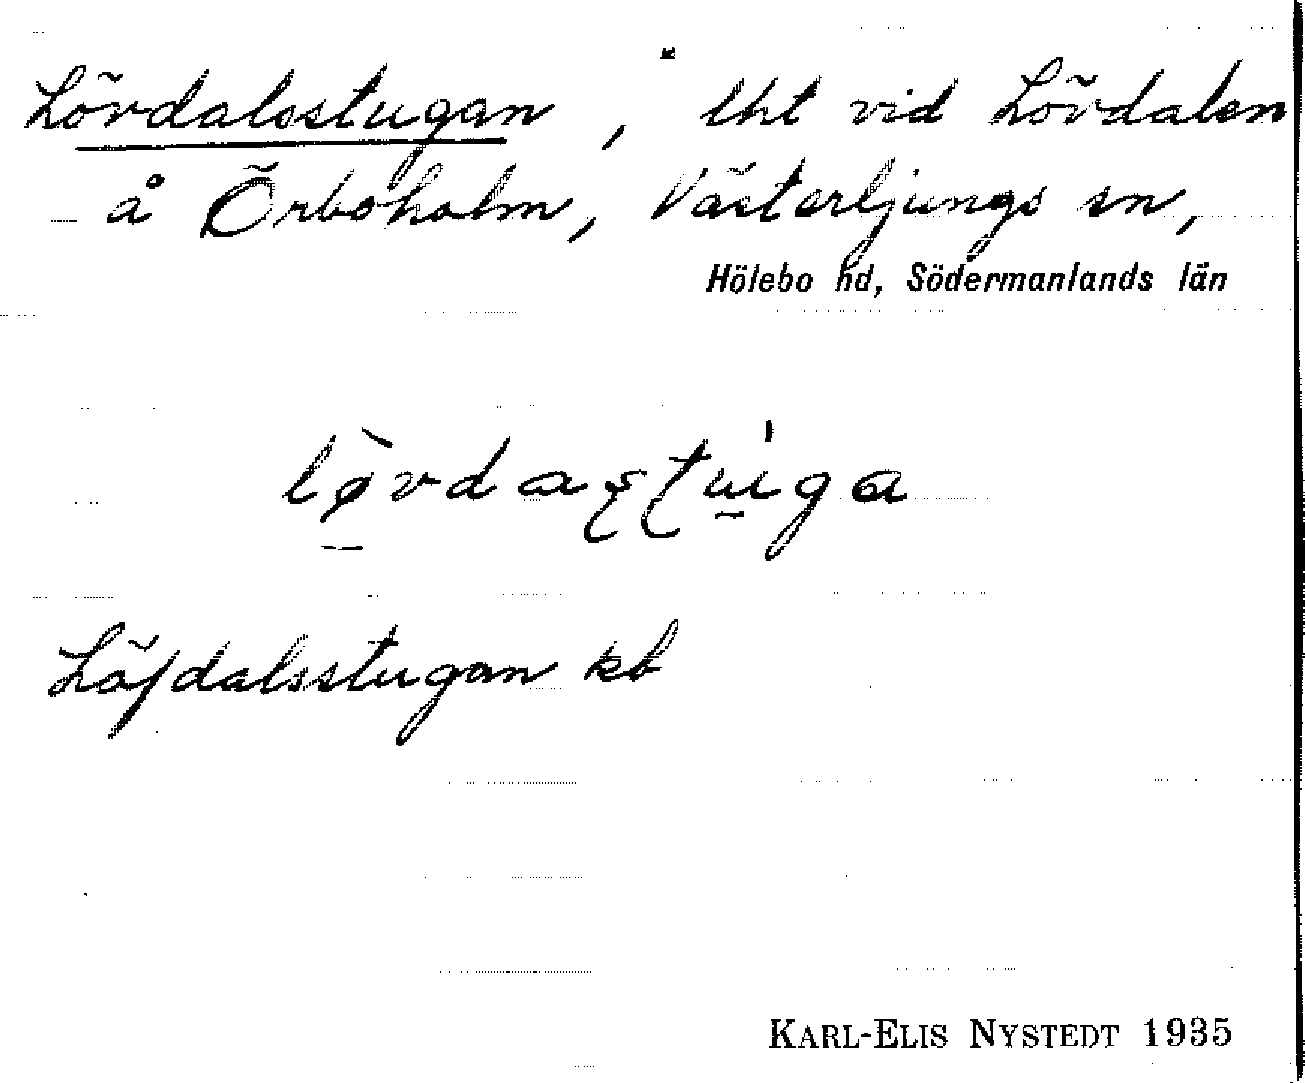 Lövdalsstugan, lht vid Lövdalen
å Örboholm, Västerljungs sn,
Hölebo hd, Södermanlands län
Löfdalsstugan kb
KARL-ELIS NYSTEDT 1935